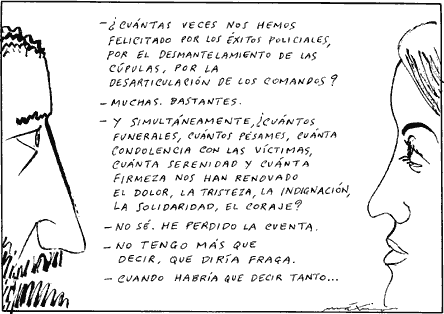 -¿CUÁNTAS VECES NOS HEMOS
FELICITADO POR LOS ÉXITOS POLICIALES,
POR EL DESMANTELAMIENTO DE LAS
CÚPULAS, POR LA
DESARTICULACIÓN DE LOS COMANDOS?
-MUCHAS. BASTANTES.
-Y SIMULTÁNEAMENTE, ¿CUÁNTOS
FUNERALES, CUÁNTOS PÉSAMES, CUÁNTA
CONDOLENCIA CON LAS VÍCTIMAS,
CUÁNTA SERENIDAD Y CUÁNTA
FIRMEZA NOS HAN RENOVADO
EL DOLOR, LA TRISTEZA, LA INDIGNACIÓN,
LA SOLIDARIDAD, EL CORAJE?
-NO SÉ. HE PERDIDO LA CUENTA.
-NO TENGO MÁS QUE
DECIR, QUE DIRÍA FRAGA.
-CUANDO HABRÍA QUE DECIR TANTO...